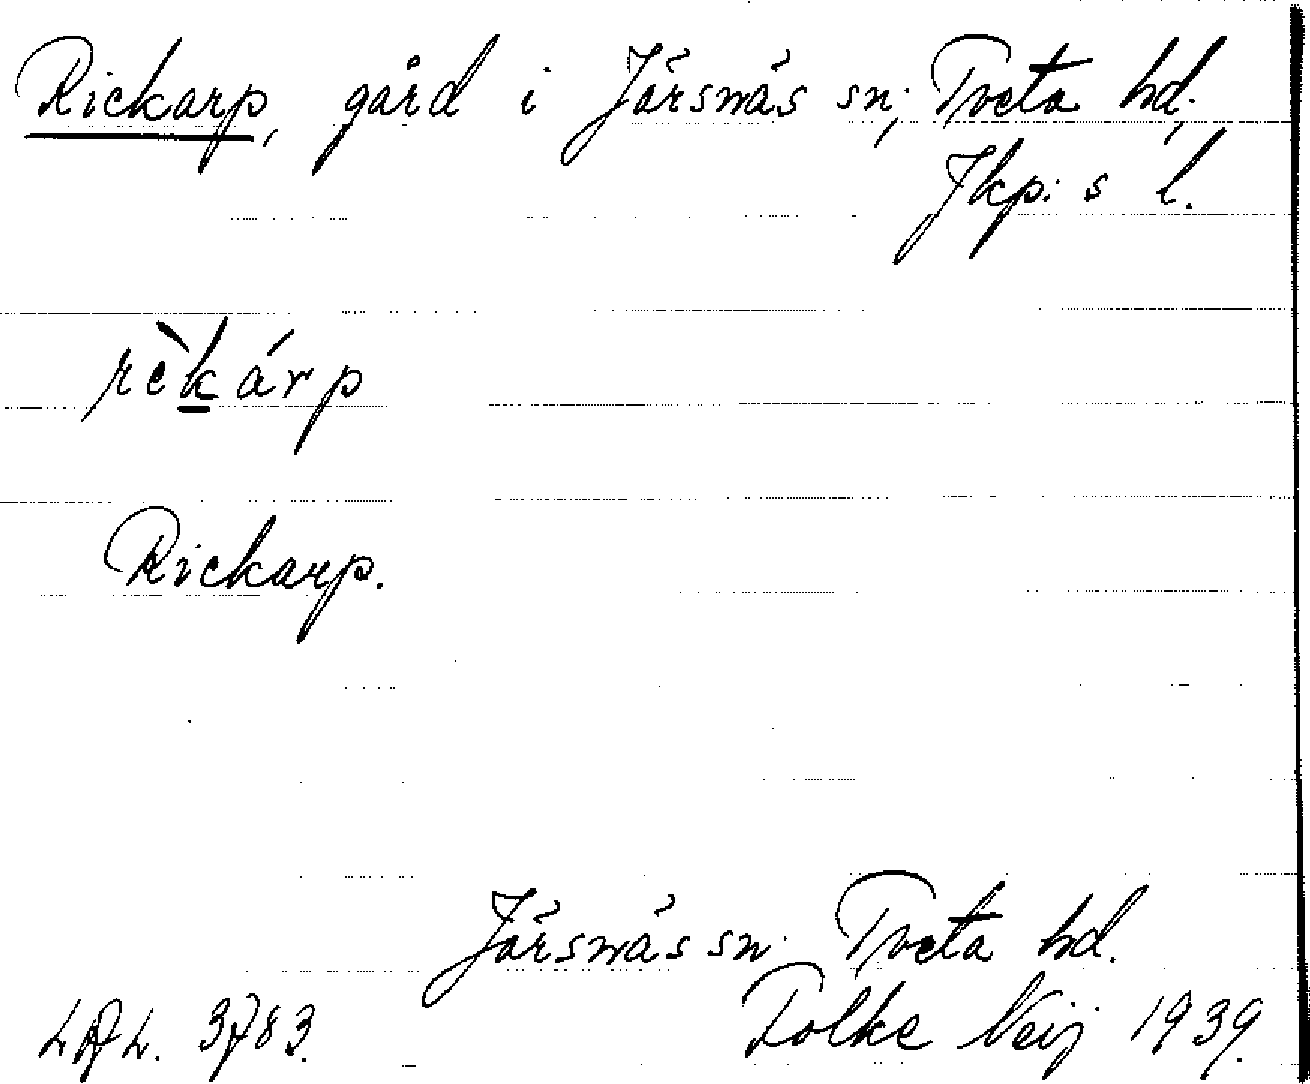 Rickarp, gård i Järsnäs sn, Tveta hd,
Jkp:s l.
rèkárp
Rickarp.
Järsnäs sn. Tveta hd.
Folke Neij 1939.
LAL. 3783.